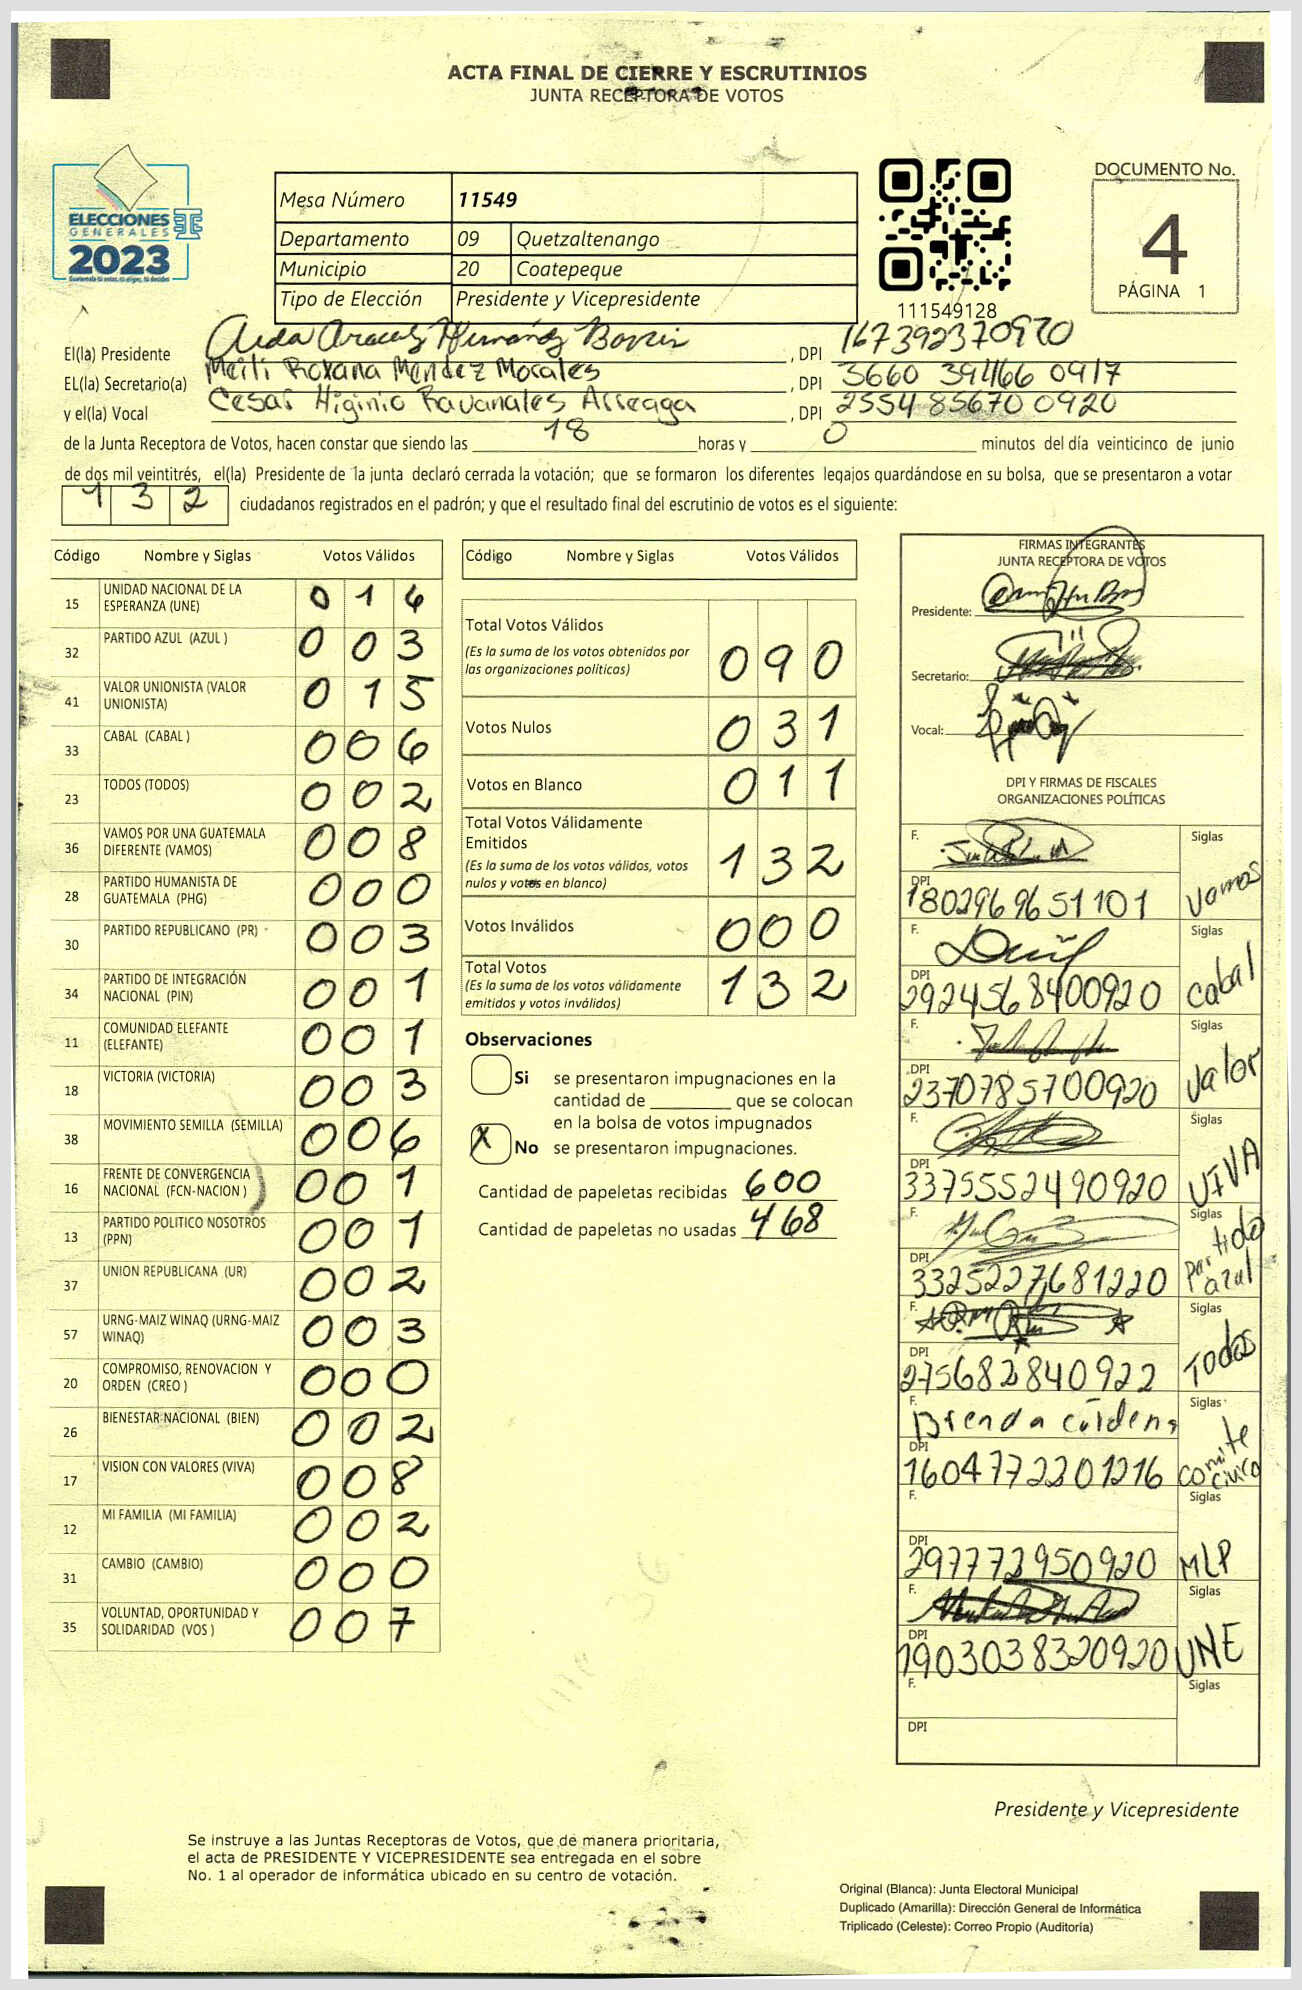 ACTA FINAL DE CIERRE Y ESCRUTINIOS
JUNTA RECEPTORA DE VOTOS
ELECCIONES
GENERALES
2023
Mesa Número 11549
Departamento 09 Quetzaltenango
Municipio 20 Coatepeque
Tipo de Elección Presidente y Vicepresidente
111549128
DOCUMENTO No.
4
PÁGINA 1
El(la) Presidente Aida Aracely Hernández , DPI 167392370920
EL(la) Secretario(a) Meili Roxana Mendez Morales , DPI 3660 39466 0917
y el(la) Vocal Cesar Higinio Ravanales Arreaga , DPI 2554 85670 0920
de la Junta Receptora de Votos, hacen constar que siendo las 18 horas y 0 minutos del día veinticinco de junio
de dos mil veintitrés, el(la) Presidente de la junta declaró cerrada la votación; que se formaron los diferentes legajos guardándose en su bolsa, que se presentaron a votar
132 ciudadanos registrados en el padrón; y que el resultado final del escrutinio de votos es el siguiente:
Código Nombre y Siglas Votos Válidos
15 UNIDAD NACIONAL DE LA ESPERANZA (UNE) 016
32 PARTIDO AZUL (AZUL ) 003
41 VALOR UNIONISTA (VALOR UNIONISTA) 015
33 CABAL (CABAL ) 006
23 TODOS (TODOS) 002
36 VAMOS POR UNA GUATEMALA DIFERENTE (VAMOS) 008
28 PARTIDO HUMANISTA DE GUATEMALA (PHG) 000
30 PARTIDO REPUBLICANO (PR) 003
34 PARTIDO DE INTEGRACIÓN NACIONAL (PIN) 001
11 COMUNIDAD ELEFANTE (ELEFANTE) 001
18 VICTORIA (VICTORIA) 003
38 MOVIMIENTO SEMILLA (SEMILLA) 006
16 FRENTE DE CONVERGENCIA NACIONAL (FCN-NACION ) 001
13 PARTIDO POLITICO NOSOTROS (PPN) 001
37 UNION REPUBLICANA (UR) 002
57 URNG-MAIZ WINAQ (URNG-MAIZ WINAQ) 003
20 COMPROMISO, RENOVACION Y ORDEN (CREO ) 000
26 BIENESTAR NACIONAL (BIEN) 002
17 VISION CON VALORES (VIVA) 008
12 MI FAMILIA (MI FAMILIA) 002
31 CAMBIO (CAMBIO) 000
35 VOLUNTAD, OPORTUNIDAD Y SOLIDARIDAD (VOS ) 007
Código Nombre y Siglas Votos Válidos
Total Votos Válidos 090
(Es la suma de los votos obtenidos por las organizaciones políticas)
Votos Nulos 031
Votos en Blanco 011
Total Votos Válidamente Emitidos 132
(Es la suma de los votos válidos, votos nulos y votos en blanco)
Votos Inválidos 000
Total Votos 132
(Es la suma de los votos válidamente emitidos y votos inválidos)
Observaciones
Si se presentaron impugnaciones en la
cantidad de ________ que se colocan
en la bolsa de votos impugnados
X No se presentaron impugnaciones.
Cantidad de papeletas recibidas 600
Cantidad de papeletas no usadas 468
FIRMAS INTEGRANTES
JUNTA RECEPTORA DE VOTOS
Presidente:
Secretario:
Vocal:
DPI Y FIRMAS DE FISCALES
ORGANIZACIONES POLÍTICAS
F. Siglas
DPI 1802969651101 Vamos
F. Siglas
DPI 2924568400920 Cabal
F. Siglas
DPI 2370785700920 Valor
F. Siglas
DPI 3375552490920 VIVA
F. Siglas
DPI 3325227681220 partido azul
F. Siglas
DPI 275682840922 Todos
F. Brenda Siglas
DPI 1604772201216 comite civico
F. Siglas
DPI 297772950920 MLP
F. Siglas
DPI 1903038320920 UNE
F. Siglas
DPI
Presidente y Vicepresidente
Se instruye a las Juntas Receptoras de Votos, que de manera prioritaria,
el acta de PRESIDENTE Y VICEPRESIDENTE sea entregada en el sobre
No. 1 al operador de informática ubicado en su centro de votación.
Original (Blanca): Junta Electoral Municipal
Duplicado (Amarilla): Dirección General de Informática
Triplicado (Celeste): Correo Propio (Auditoría)